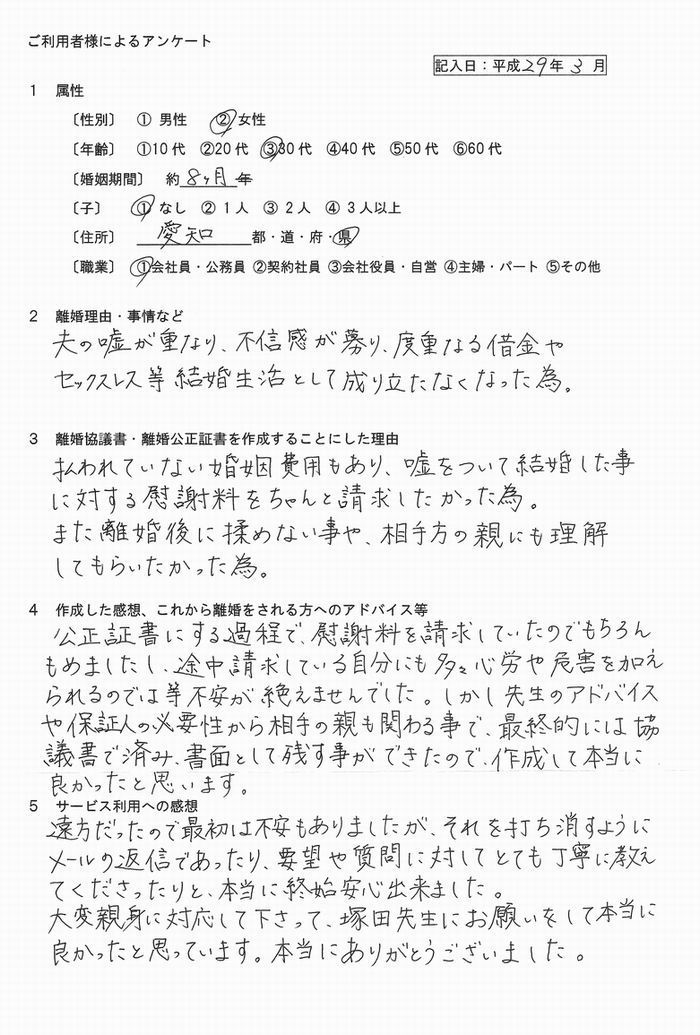 ご利用者様によるアンケート
記入日：平成29年 3 月
1 属性
〔性別〕 ① 男性 ② 女性
〔年齢〕 ①10代 ②20代 ③30代 ④40代 ⑤50代 ⑥60代
〔婚姻期間〕 約 8ヶ月 年
〔子〕 ① なし ② 1人 ③ 2人 ④ 3人以上
〔住所〕 愛知 都・道・府・県
〔職業〕 ①会社員・公務員 ②契約社員 ③会社役員・自営 ④主婦・パート ⑤その他
2 離婚理由・事情など
夫の嘘が重なり、不信感が募り、度重なる借金や
セックスレス等結婚生活として成り立たなくなった為。
3 離婚協議書・離婚公正証書を作成することにした理由
払われていない婚姻費用もあり、嘘をついて結婚した事
に対する慰謝料をちゃんと請求したかった為。
また離婚後に揉めない事や、相手方の親にも理解
してもらいたかった為。
4 作成した感想、これから離婚をされる方へのアドバイス等
公正証書にする過程で、慰謝料を請求していたのでもちろん
もめましたし、途中請求している自分にも多々心労や危害を加え
られるのでは等不安が絶えませんでした。しかし先生のアドバイス
や保証人の必要性から相手の親も関わる事で、最終的には協
議書で済み、書面として残す事ができたので、作成して本当に
良かったと思います。
5 サービス利用への感想
遠方だったので最初は不安もありましたが、それを打ち消すように
メールの返信であったり、要望や質問に対してとても丁寧に教え
てくださったりと、本当に終始安心出来ました。
大変親身に対応して下さって、塚田先生にお願いをして本当に
良かったと思っています。本当にありがとうございました。